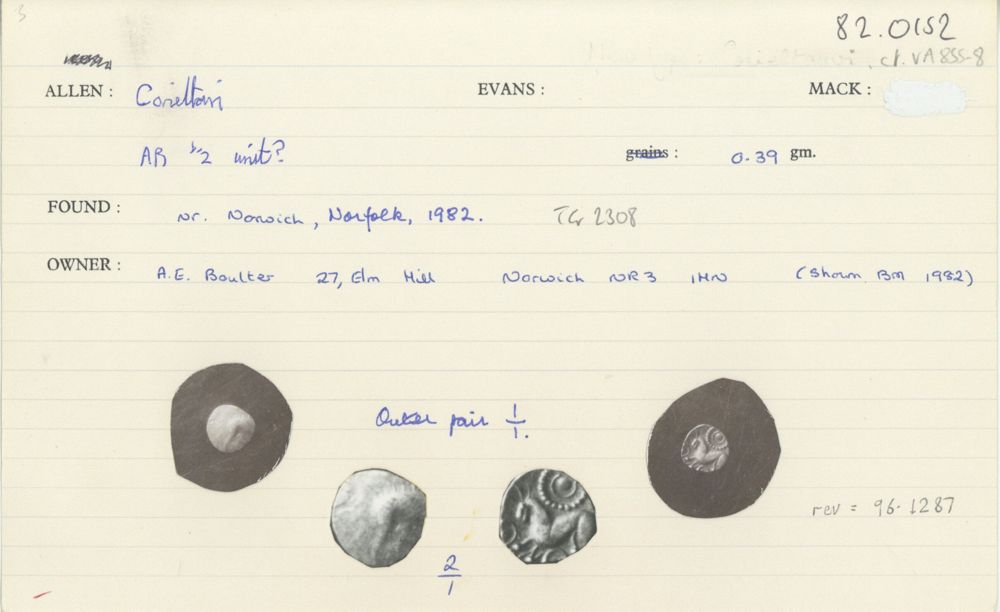 3
82.0152
cf. VA 855-8
ALLEN : Corieltavi EVANS : MACK :
AR ½ unit? grains : 0.39 gm.
FOUND : nr. Norwich, Norfolk, 1982. TG 2308
OWNER : A.E. Boulter 27, Elm Hill Norwich NR3 1HN (Shown BM 1982)
Outer pair 1/1.
rev = 96.1287
2/1